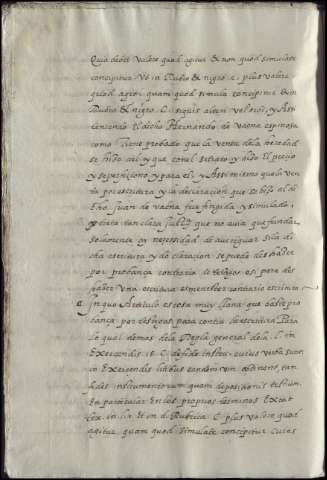 Quia debet valere quod agitur & non quod simulate
concipitur. Vt in Rubro & nigro. c. plus valere
quod agitur quam quod simulate concipitur & in
Rubro & nigro. C. siquis alteri vel sibi, y Assi
teniendo el dicho Hernando de vaena espinosa
como tiene probado que la venta de la heredad
se hizo a el y que con el se trato y dio el precio
y se vendio no y para el y Assi mismo que la ven
ta por escritura y la declaracion que se hizo al di
cho Juan de vaena fue fingida y simulada,
y esta tan clara que no auia que fundar
solamente ay necesidad de aueriguar si la di
cha escritura y declaracion se puede deshazer
por probança contraria de testigos o si para des
hazer una escritura es menester contraria escritura
In quo Articulo es cosa muy llana que baste pro
bança por testigos para contra la escritura Para
lo qual demas de la Regla general de la l. in
Exercendis. 15. C. de fide instru. cuius verba sunt
in Exercendis litibus eandem vim obtinent, tan
fides instrumentorum quam depositionis testium.
En particular En los propios terminos Exstat
tex. in l. a. Et in d. Rubrica. C. plus valere quod
agitur, quam quod simulate concipitur cuius